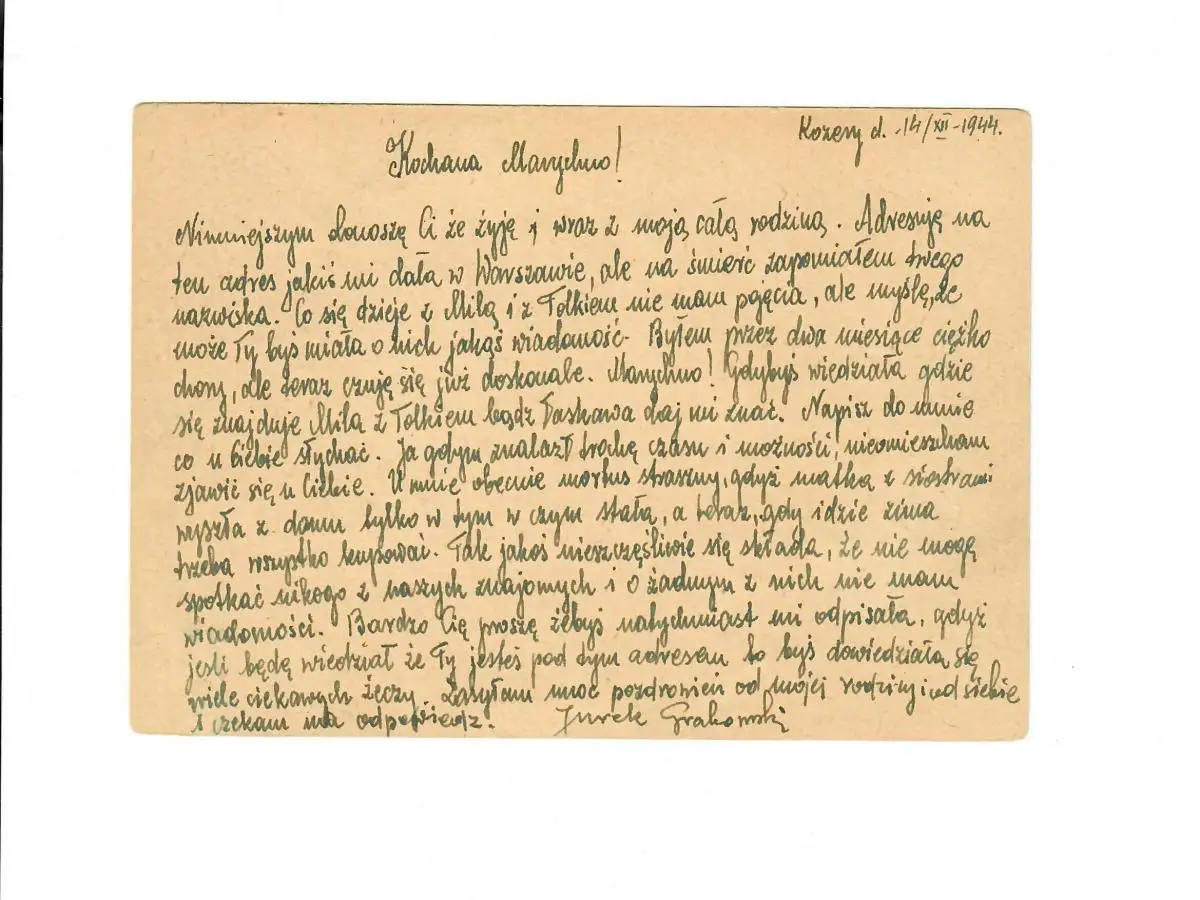 Kozery d. 14/XII-1944.
Kochana Marychno!
Niniejszym donoszę Ci że żyję i wraz z moją całą rodziną. Adresuję na
ten adres jakiś mi dała w Warszawie, ale na śmierć zapomiałem twego
nazwiska. Co się dzieje z Milą i z Tolkiem nie mam pojęcia, ale myślę, że
może Ty byś miała o nich jakąś wiadomość. Byłem przez dwa miesiące ciężko
chory, ale teraz czuję się już doskonale. Marychno! Gdybyś wiedziała gdzie
się znajduje Mila z Tolkiem bądz łaskawa daj mi znać. Napisz do mnie
co u Ciebie słychać. Ja gdym znalazł trochę czasu i możności, nieomieszkam
zjawić się u Ciebie. U mnie obecnie mortus straszny, gdyż matka z siostrami
wyszła z domu tylko w tym w czym stała, a teraz, gdy idzie zima
trzeba wszystko kupować. Tak jakoś nieszczęśliwie się składa, że nie mogę
spotkać nikogo z naszych znajomych i o żadnym z nich nie mam
wiadomości. Bardzo Cię proszę żebyś natychmiast mi odpisała, gdyż
jesli będę wiedział że Ty jesteś pod tym adresem to byś dowiedziała się
wiele ciekawych żeczy. Zasyłam moc pozdrowień od mojej rodziny i od siebie
i czekam na odpowiedz. Jurek Grakowski